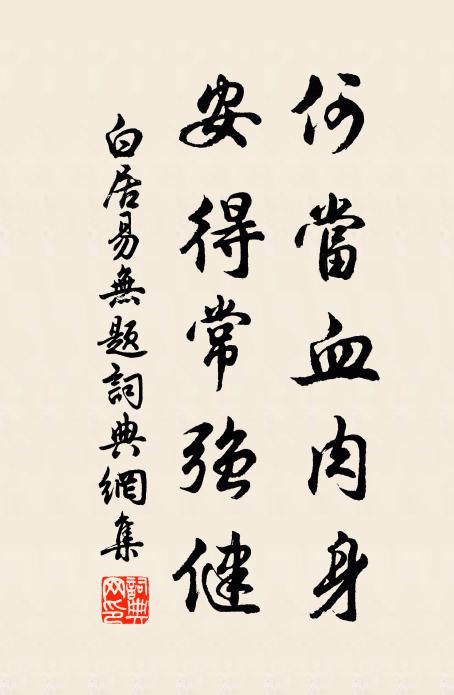 何當血肉身
安得常強健
白居易無題詞典網集
詞典網印